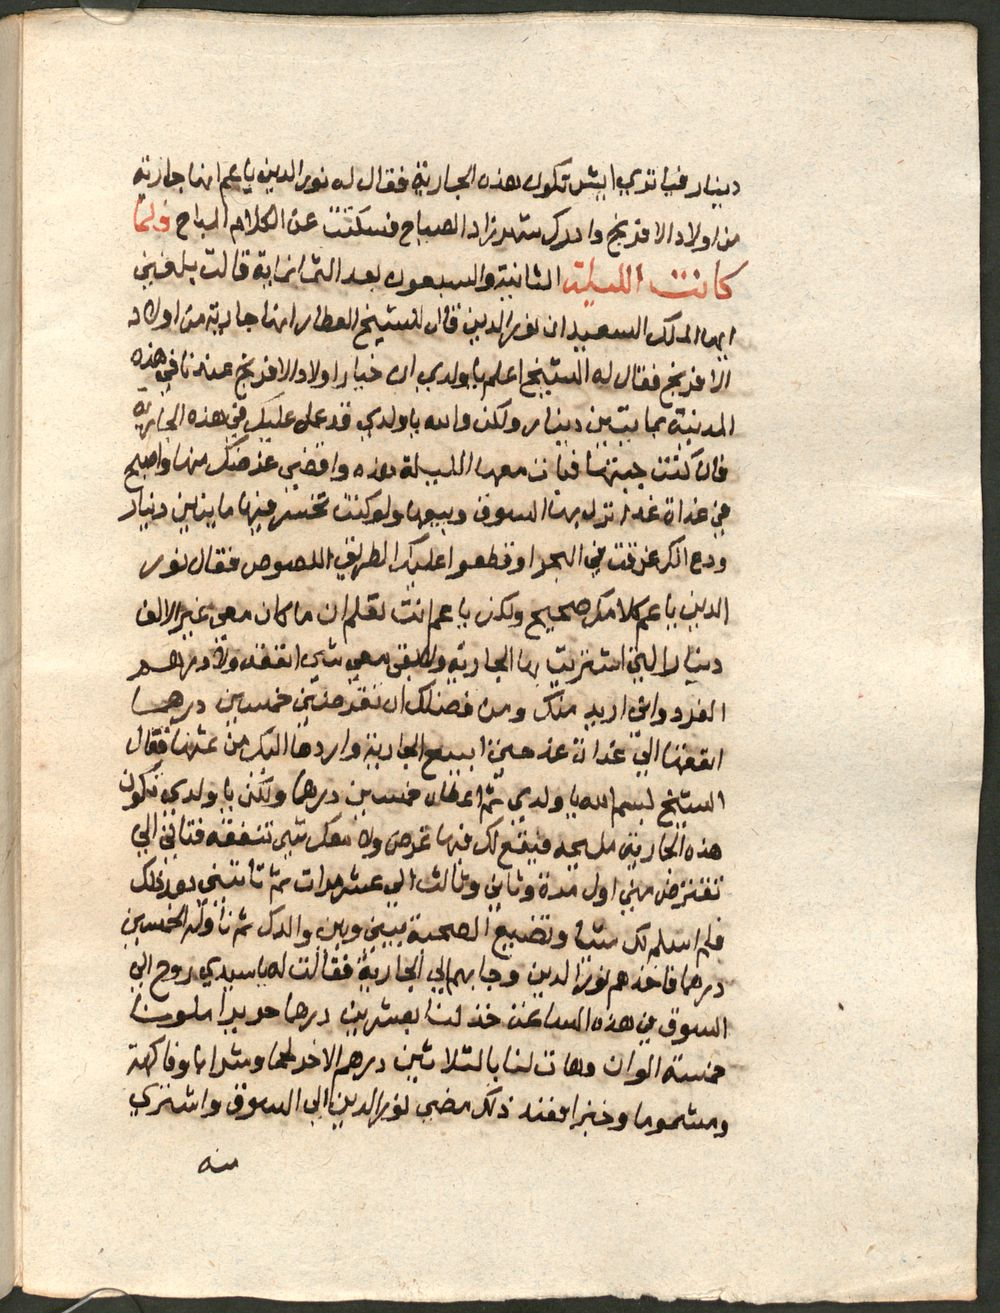 دينار فيا تري ايش تكون هذه الجارية فقال له نور الدين يا عم انها جارية
من اولاد الافرنج وادرك شهرزاد الصباح فسكتت عن الكلام المباح فلما
كانت الليلة الثانية والسبعون بعد الثمانماية قالت بلغني
ايها الملك السعيد ان نور الدين قال للشيخ العطار انها جارية من اولاد
الافرنج فقال له الشيخ اعلم يا ولدي ان خيار اولاد الافرنج عندنا في هذه
المدينة بمايتين دينار ولكن والله يا ولدي قد عمل عليك في هذه الجارية
فان كنت حبيتها فبات معها الليلة دي واقضي غرضك منها واصبح
في غداة غد انزل بها السوق وبيعها ولو كنت تخسر فيها مايتاين دينار
ودع انك غرقت في البحر او قطعوا عليك الطريق اللصوص فقال نور
الدين يا عم كلامك صحيح ولكن يا عم انت تعلم ان ما كان معي غير الالف
دينار التي اشتريت بها الجارية ولا بقي معي شي انفقه ولا درهم
الفرد واني اريد منك ومن فضلك ان تقرضني خمسين درهما
انفقها الي غداة غد حتي ابيع الجارية واردها اليك من ثمنها فقال
الشيخ بسم الله يا ولدي ثم اعطاه خمسين درهما ولكن يا ولدي تكون
هذه الجارية مليحه فيقع لك فيها غرض ولا معك شي تنفقه فتاتي الي
تقترض مني اول مدة وثاني وثالث الي عشر مرات ثم تاتيني بعد ذلك
فلم اسلم لك شيا وتضيع الصحبة بيني وبين والدك ثم ناوله الخمسين
درهما فاخذهم نور الدين وجا بهم الي الجارية فقالت له يا سيدي روح الي
السوق في هذه الساعة خذ لنا بعشرين درهما حريرا ملونا
خمسة الوان وهات لنا بالثلاثين درهم الاخر لحما وشرابا وفاكهة
ومشموما وخبزا فعند ذلك مضي نور الدين الي السوق واشتري
منه